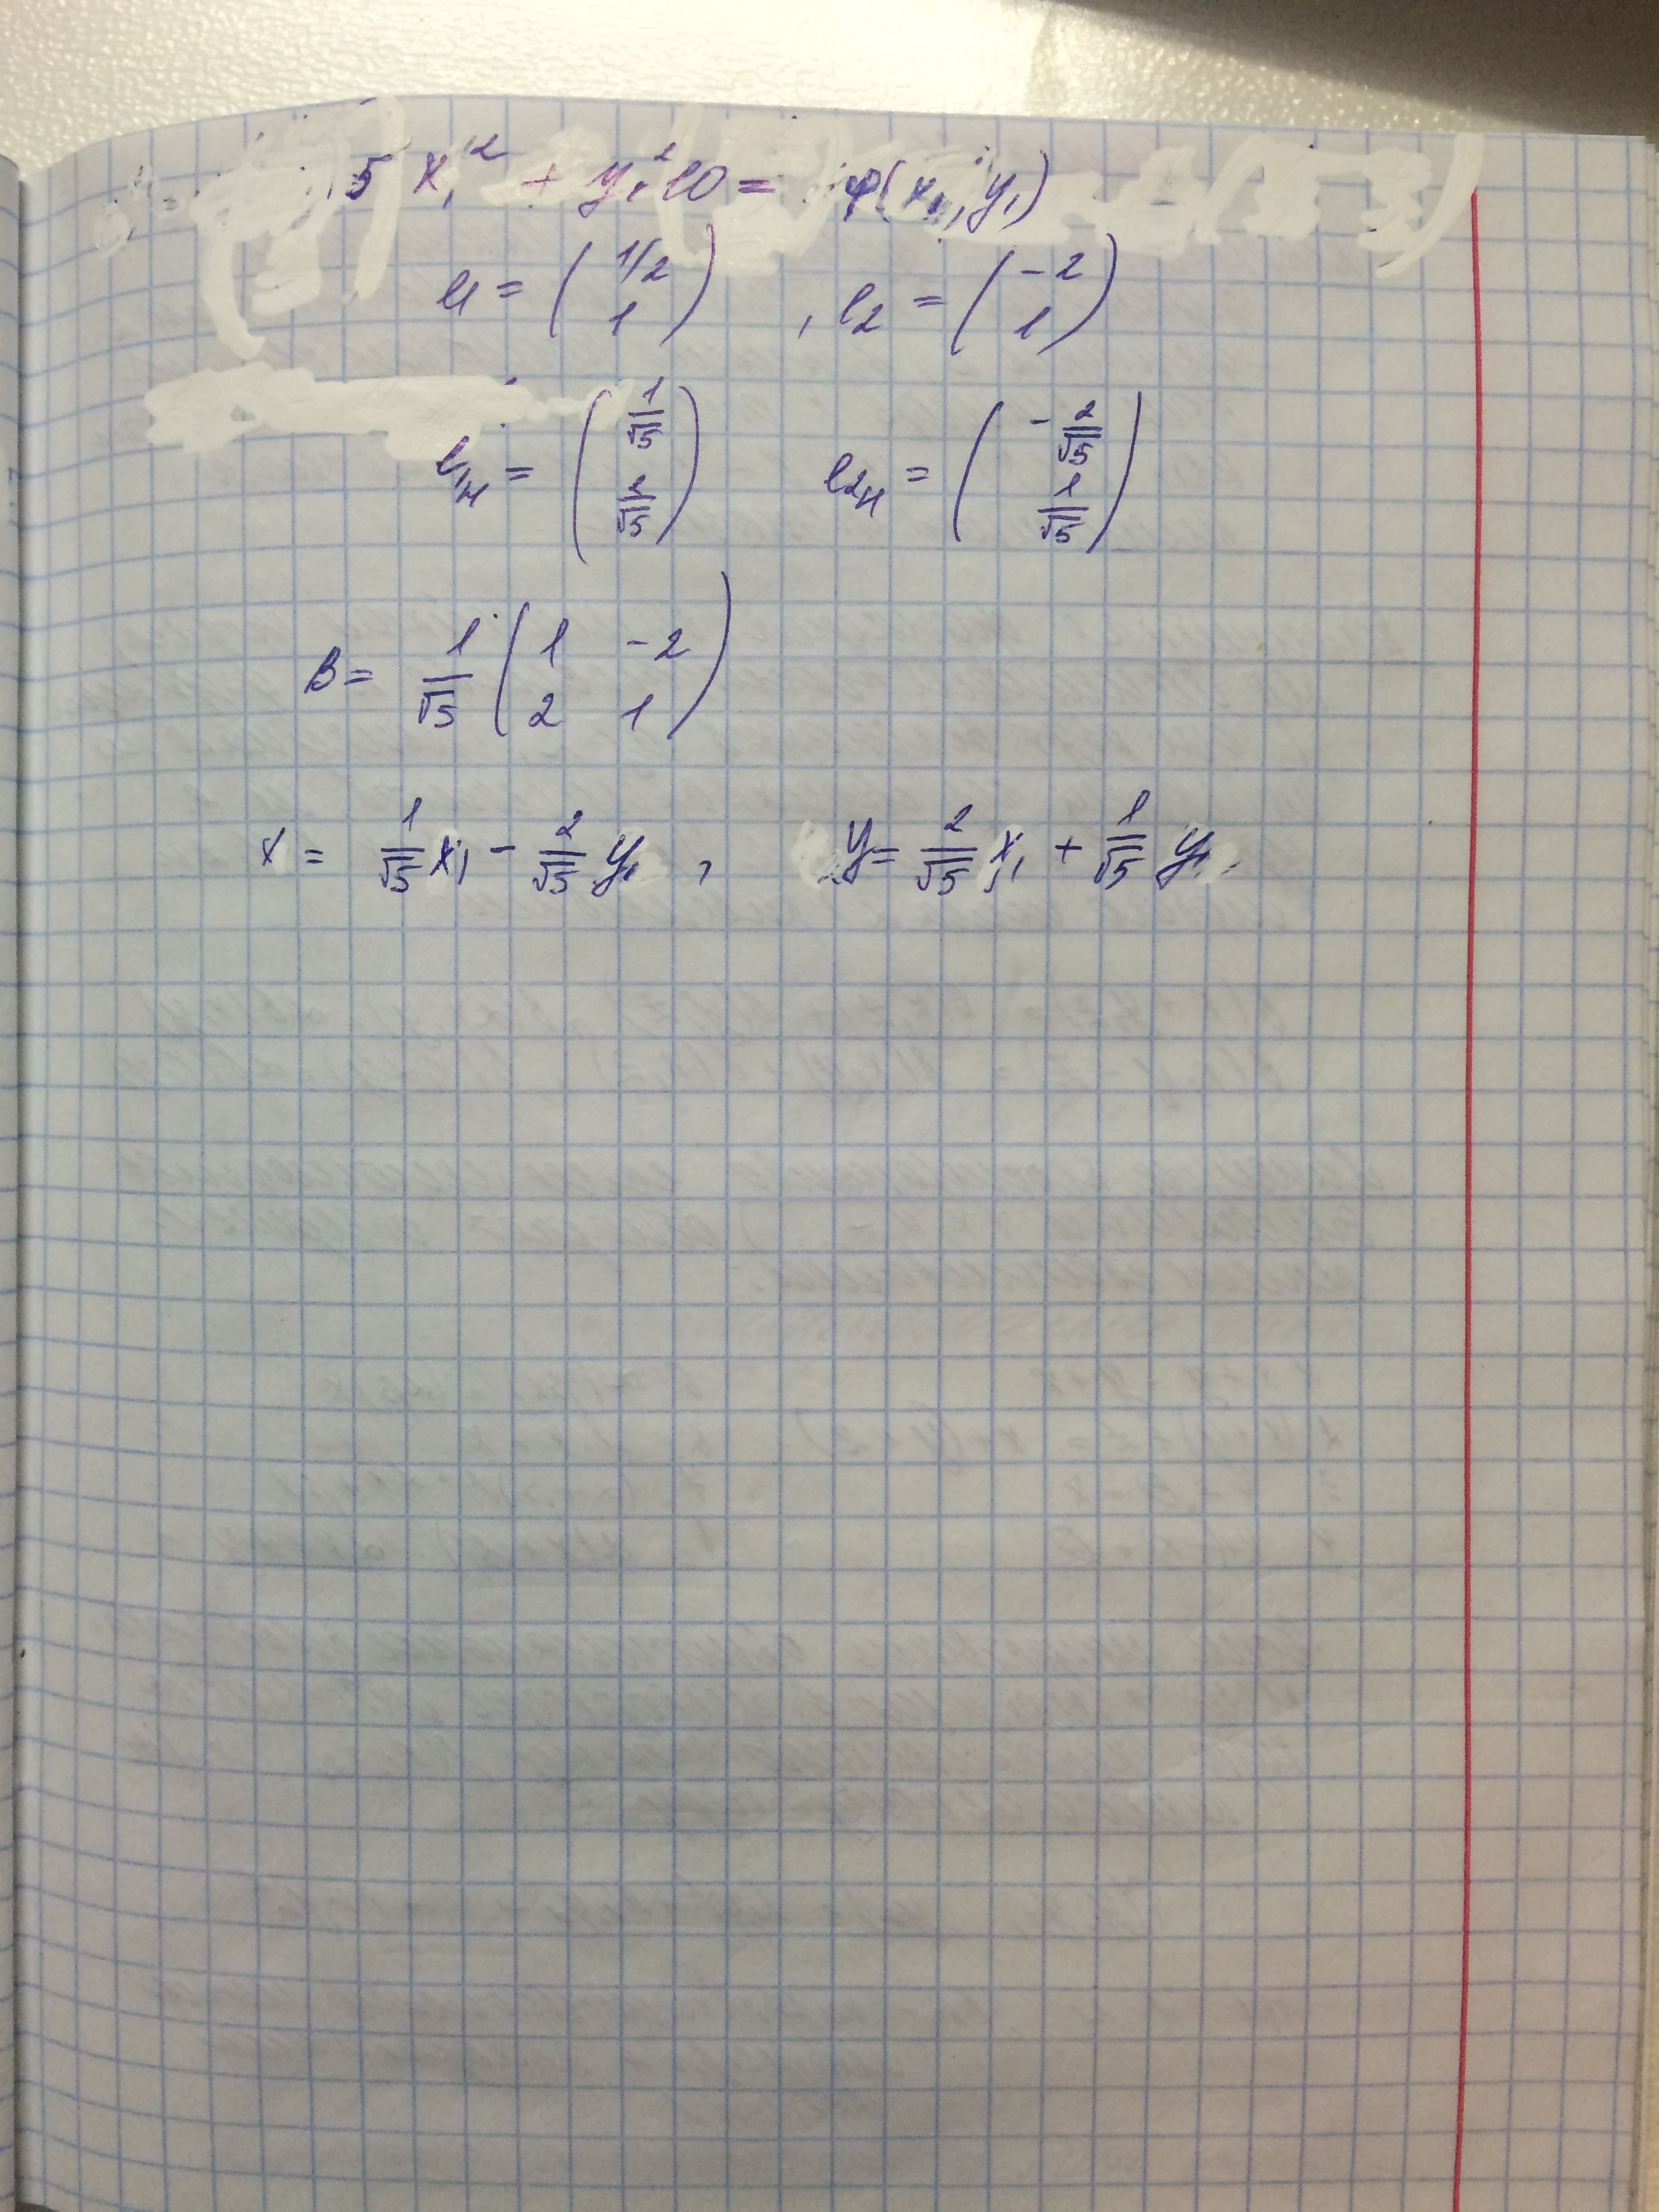 5 x₁² + y₁² 10 = φ(x₁, y₁)
l1 = (1/2 1) , l2 = (-2 1)
l₁н = (1/√5 2/√5) l₂н = (-2/√5 1/√5)
B = 1/√5 (1 -2 2 1)
x = 1/√5 x₁ - 2/√5 y₁ , y = 2/√5 x₁ + 1/√5 y₁ .